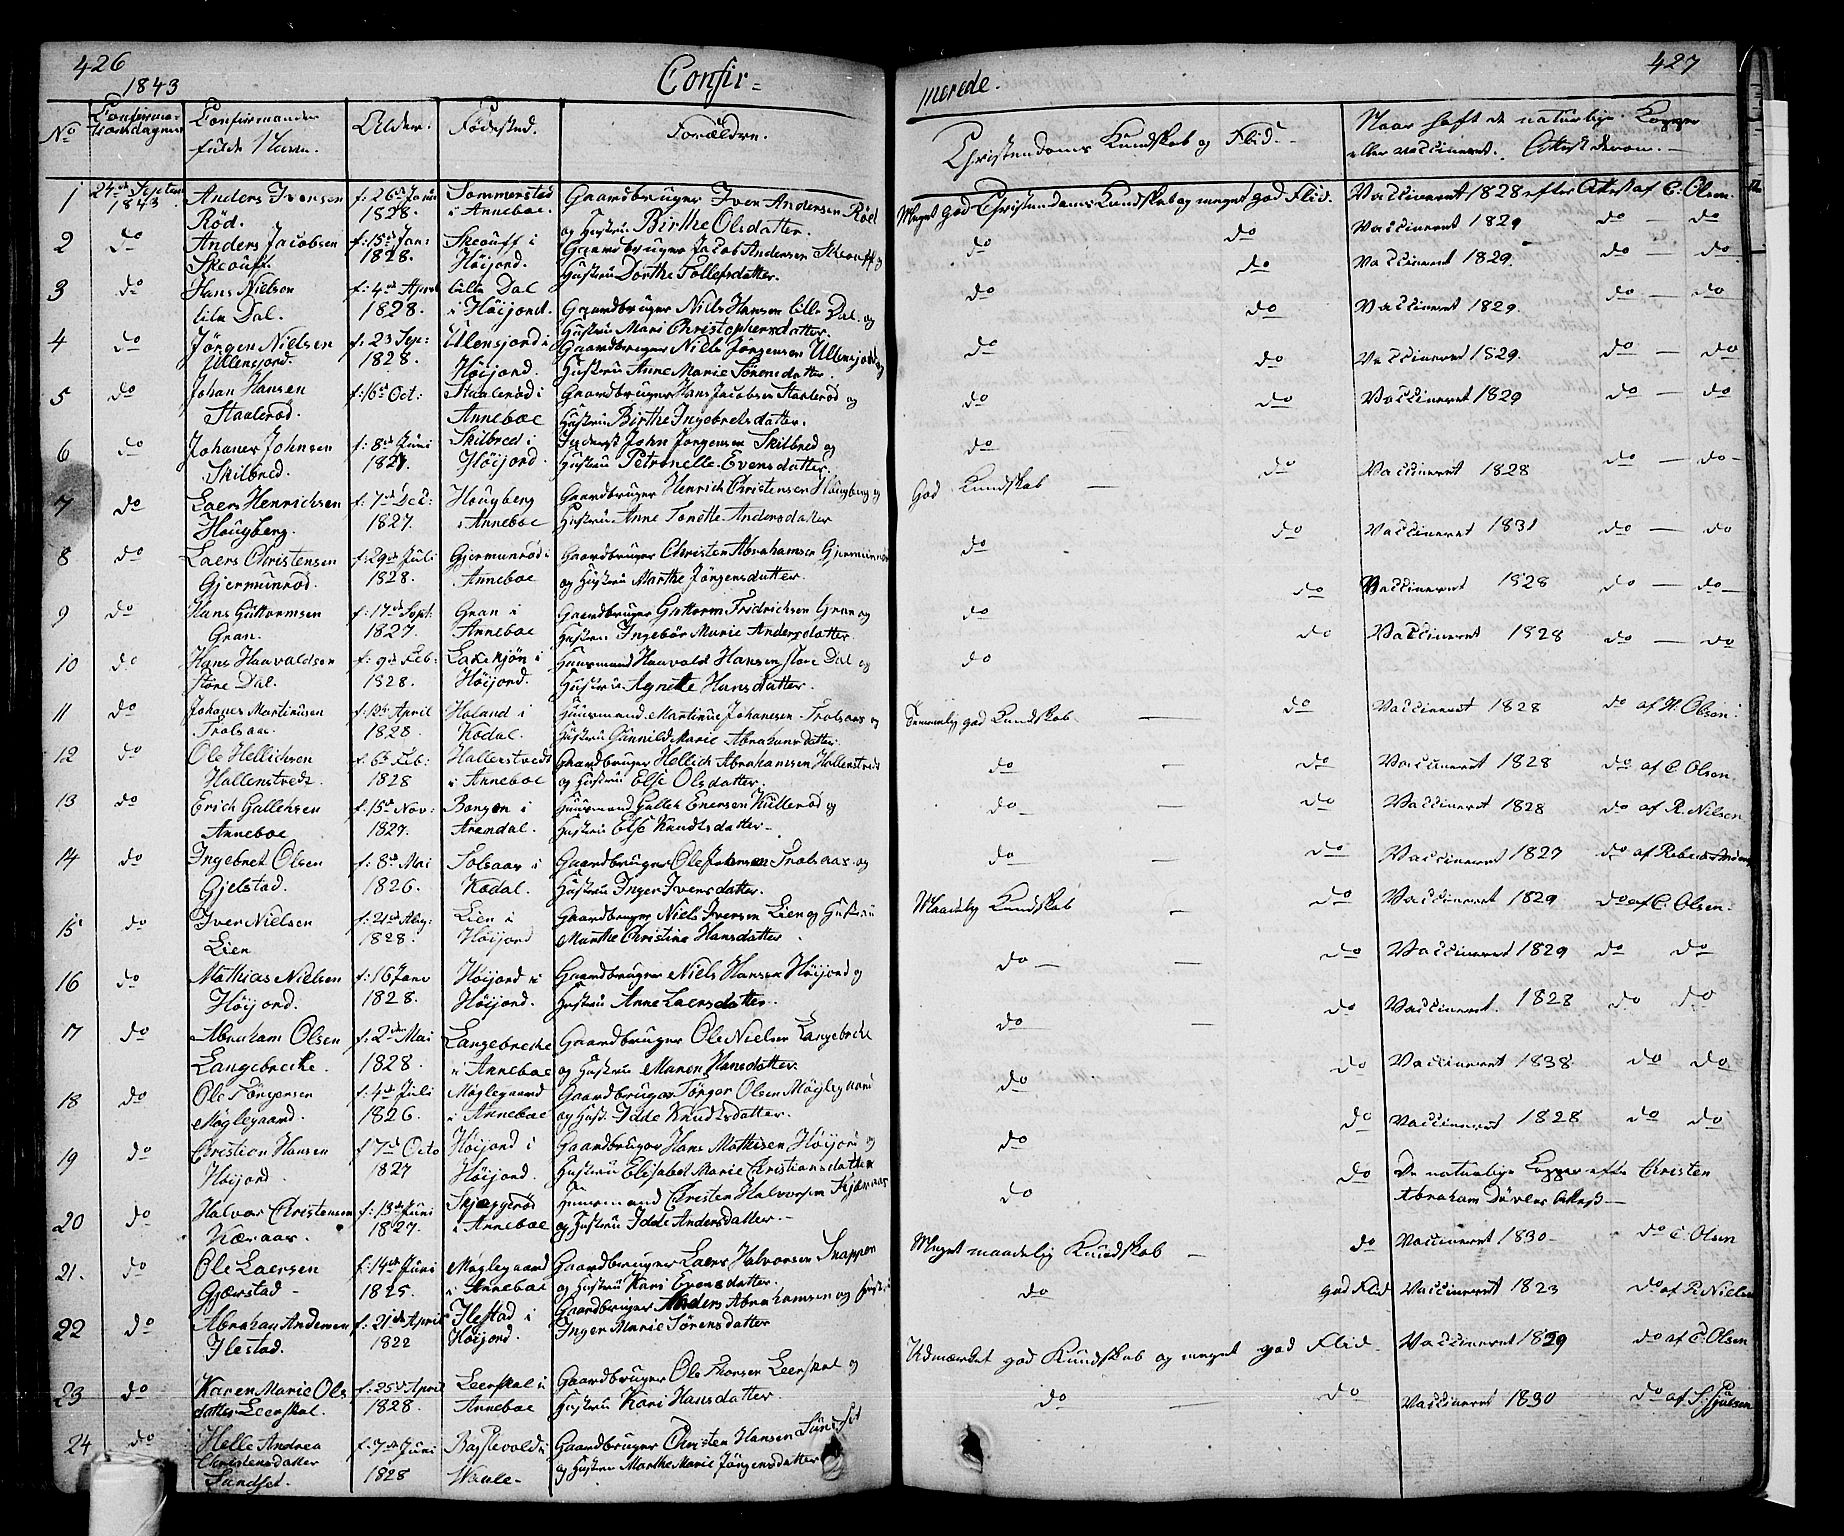 426
1843
Confir=
No
Confirma-
tionsdagen
Confirmander
fulde Navn.
Alder.
Fødested.
Forældre.
1
24de Septem
1843.
Anders Iversen
Röd.
f: 26de Janu
1828.
Sommersted
i Anneboe.
Gaardbruger Iver Andersen Röd
og Hustru Birthe Olsdatter.
2
do
Anders Jacobsen
Skeouff.
f: 15de Jan:
1828.
Skeouff i
Höijord.
Gaardbruger Jacob Andersen Skeouff og
Hustru Dorthe Tollefsdatter.
3
do
Hans Nielsen
lille Dal.
f: 4de April
1828.
lille Dal
i Höijord.
Gaardbruger Niels Hansen lille Dal og
Hustru Mari Christophersdatter.
4
do
Jörgen Nielsen
Ullensjord.
f: 23 Sep:
1828.
Ullensjord i
Höijord.
Gaardbruger Niels Jörgensen Ullensjord og
Hustru Anne Marie Sörensdatter.
5
do
Johan Hansen
Staaleröd.
f: 16de Oct:
Staaleröd i
Anneboe.
Gaardbruger Hans Jacobsen Staaleröd og
Hustru Birthe Ingebretsdatter.
6
do
Johanes Johnsen
Skilbred.
f: 8de Juni
1827.
Skilbred i
Höijord.
John Jörgensen Skilbred og
Hustru Petronelle Evensdatter.
7
do
Laers Henrichsen
Hougberg.
f: 7de Dec:
1827.
Hougberg
i Anneboe
Gaardbruger Henrich Christensen Hougberg og
Hustru Anne Tonette Andersdatter
8
do
Laers Christensen
Gjermunröd.
f: 29de Juli
1828.
Gjermunröd i
Anneboe
Gaardbruger Christen Abrahamsen Gjermunröd
og Hustru Marthe Jörgensdatter.
9
do
Hans Guttormsen
Gran.
f: 17de Sept:
1827.
Gran i
Anneboe
Gaardbruger Guttorm Fridrichsen Gran og
Hustru Ingebör Marie Andersdatter.
10
do
Hans Haavaldsen
store Dal.
f: 9de Feb:
1828.
Lakskjön i
Höijord.
Huusmand Haavald Hansen store Dal og
Hustru Agnette Hansdatter.
11
do
Johanes Martinusen
Trolsaas.
f: 12te April
1828.
Holand i
Kodal.
Huusmand Martinus Johanesen Trolsaas og
Hustru Gunnild Marie Abrahamsdatter.
12
do
Ole Hellichsen
Hallenstvedt.
f: 6te Feb:
1828
Hallenstvedt
i Anneboe
Gaardbruger Hellich Abrahamsen Hallenstvedt
og Hustru Else Olsdatter.
13
do
Erich Gullichsen
Anneboe
f: 15de Nov:
1827.
Borgen i
Arendal.
Huusmand Gullich Enersen Kulleröd og
Hustru Else Knudtsdatter.
14
do
Ingebret Olsen
Gjelstad.
f: 8de Mai
1826.
Tolsaas i
Kodal.
Gaardbruger Ole Johnsen Trolsaas og
Hustru Inger Iversdatter.
15
do
Iver Nielsen
Lien
f: 21de Aug:
1828.
Lien i
Höijord
Gaardbruger Niels Iversen Lien og Hustru
Marthe Christine Hansdatter
16
do
Mathias Nielsen
Höijord.
f: 16 Janv
1828.
Höijord i
Höijord.
Gaardbruger Niels Hansen Höijord og
Hustru Anne Laersdatter.
17
do
Abraham Olsen
Langebrecke.
f: 2den Mai
1828.
Langebrecke
i Anneboe
Gaardbruger Ole Nielsen Langebrecke
og Hustru Maren Hansdatter.
18
do
Ole Törgersen
Møglegaard.
f: 4de Juli
1826.
Møglegaard
i Anneboe
Gaardbruger Törger Olsen Møglegaard
og Hust: Idde Knudtsdatter.
19
do
Christian Hansen
Höijord.
f: 7de Octo
1827
Höijord i
Höijord.
Gaardbruger Hans Mathisen Höijord og
Hustru Elisabet Marie Christiansdatter
20
do
Halvor Christensen
Kæraas.
f: 13de Juni
1827.
Skjæggeröd
i Anneboe
Huusmand Christen Halvorsen Kjæraas
og Hustru Idde Andersdatter.
21.
do
Ole Laersen
Gjærstad
f: 14de Juni
1825.
Møglegaard
i Anneboe
Gaardbruger Laers Halvorsen Snappen
og Hustru Kari Evensdatter.
22
do
Abraham Andersen
Ilestad.
f: 21de April
1822
Ilestad i
Höijord.
Gaardbruger Anders Abrahamsen og Hustru
Inger Marie Sörensdatter
23
do
Karen Marie Ols
datter Leerskal.
f: 25de April
1828.
Leerskal i
Anneboe
Gaardbruger Ole Thorsen Leerskal og
Hustru Kari Hansdatter
24
do
Helle Andrea
Christensdatter
Sundset.
f: 7de Juni
1828
Gaardbruger Christen Hansen Sundset
og Hustru Marthe Marie Jörgensdatter
427
merede.
Christendoms Kundskab og Flid.
Naar haft de naturlige Kopper
eller vaccineret. Attest derom.
Meget god Christendoms Kundskab og meget god Flid.
Vaccineret 1828 efter Attest af C: Olsen
do
do
Vaccineret 1829
do — do
do
do
Vaccineret 1829.
do — do
do
do
Vaccineret 1829.
do — do
do
do
Vaccineret 1829.
do — do
do
do
Vaccineret 1829
do — do
do
do
Vaccineret 1828
do — do
God Kundskab —
do
Vaccineret 1831
do — do
do
do
Vaccineret 1828
do — do
do
do
Vaccineret 1828
do — do
do
do
Vaccineret 1828
do af H. Olsen
Temmelig god Kundskab —
do
Vaccineret 1828
do af C Olsen
do —
do
Vaccineret 1828
do af R. Nielsen
do —
do
Vaccineret 1827
do —
do
Vaccineret 1829
do af C. Olsen
Maadelig Kundskab —
do
Vaccineret 1829
do do
do —
do
Vaccineret 1828
do do
do —
do
Vaccineret 1838
do do
do
do
Vaccineret 1828
do do
do
do
De naturlige Kopper efter Christen
Abraham Attest
do
do
Vaccineret 1830
do C. Olsen
Meget maadelig Kundskab —
god Flid
Vaccineret 1823
do af R Nielsen
do
Vaccineret 1829
do af C. Olsen
Udmærket god Kundskab og meget god Flid.
Vaccineret 1830
do —
do